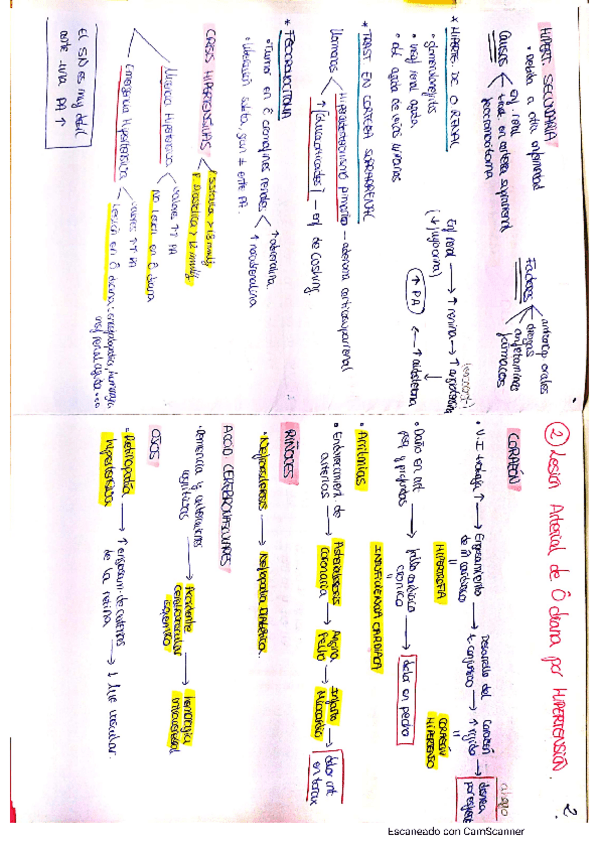 HIPERT. SECUNDARIA
• Debida a otra enfermedad
Causas
enf. renal
trast. en corteza suprarrenal
feocromocitoma
Factores
anticoncep orales
drogas
anfetaminas
fármacos
* HIPERTE. DE O RENAL
• glomerulonefritis
• insuf renal aguda
• obs. aguda de vías urinarias
Enf renal → ↑ renina → ↑ angiotensina
(↓ flujo renal)
↑ PA ← ↑ aldosterona
* TRAST EN CORTEZA SUPRARRENAL
Llamamos
Hiperaldosteronismo primario - adenoma corticosuprarrenal
↑ [Glucocorticoides] - enf de Cushing.
* FEOCROMOCITOMA
• Tumor en
↑ adrenalina
↑ noradrenalina.
CRISIS HIPERTENSIVAS
P. Sistólica > 18 mmHg
P. Diastólica > 12 mmHg
Urgencia Hipertensiva
valores ↑ PA
No lesión en ô diana
Emergencia Hipertensiva
valores ↑↑ PA
Lesión en ô diana: encefalopatía, hemorragia
insuf renal aguda
El SN es muy débil
ante una PA ↑
2.
② Lesión Arterial de ô diana por HIPERTENSIÓN.
CORAZÓN
• V.I trabaja ↑ → Engrosamiento
de m cardíaco → Desarrollo del
t. conjuntivo → Corazón
↑ rígido → disnea
por esfuerzo
HIPERTROFIA
CORAZÓN
HIPERTENSO
• Daño en art → fallo cardíaco
crónico → dolor en pecho
INSUFICIENCIA CARDIACA
• Arritmias
• Endurecimiento de
arterias → Aterosclerosis
Coronaria → Angina
Pecho → Infarto
Miocardio → dolor int
en torax
RIÑONES
• Nefroesclerosis → Nefropatía DIABÉTICA.
ACCID CEREBROVASCULARES
• Demencia y alteraciones
cognitivas → Accidente
cerebrovascular
isquémico → hemorragia
intracerebral
OJOS
• Retinopatía
hipertensiva → ↑ engrosam. de arterias
de la retina → ↓ luz vascular.
Escaneado con CamScanner